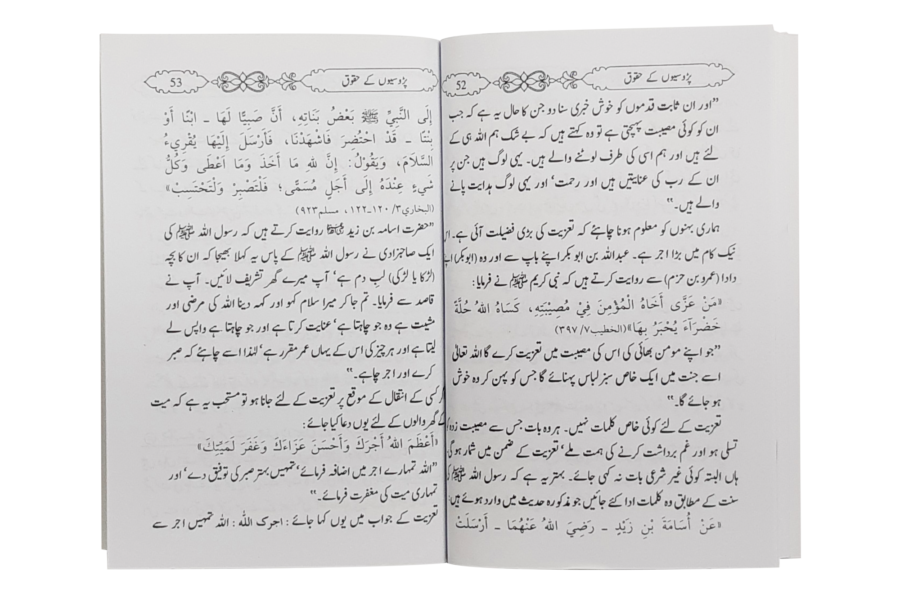 52
پڑوسیوں کے حقوق
”اور ان ثابت قدموں کو خوش خبری سنا دو جن کا حال یہ ہے کہ جب
ان کو کوئی مصیبت پہنچتی ہے تو وہ کہتے ہیں کہ بے شک ہم اللہ ہی کے
لئے ہیں اور ہم اسی کی طرف لوٹنے والے ہیں۔ یہی لوگ ہیں جن پر
ان کے رب کی عنایتیں ہیں اور رحمت، اور یہی لوگ ہدایت پانے
والے ہیں۔“
ہماری بہنوں کو معلوم ہونا چاہئے کہ تعزیت کی بڑی فضیلت آئی ہے۔ اس
نیک کام میں بڑا اجر ہے۔ عبداللہ بن ابو بکر اپنے باپ سے اور وہ (ابوبکر)
دادا (عمرو بن حزم) سے روایت کرتے ہیں کہ نبی کریم ﷺ نے فرمایا:
«مَنْ عَزَّى أَخَاهُ الْمُؤْمِنَ فِيْ مُصِيْبَتِهِ، كَسَاهُ اللهُ حُلَّةً
خَضْرَاءَ يُحْبَرُ بِهَا»(الخطيب٧/ ٣٩٧)
”جو اپنے مومن بھائی کی اس کی مصیبت میں تعزیت کرے گا اللہ تعالیٰ
اسے جنت میں ایک خاص سبز لباس پہنائے گا جس کو پہن کر وہ خوش
ہو جائے گا۔“
تعزیت کے لئے کوئی خاص کلمات نہیں۔ ہر وہ بات جس سے مصیبت زدہ کو
تسلی ہو اور غم برداشت کرنے کی ہمت ملے، تعزیت کے ضمن میں شمار ہو گی
ہاں البتہ کوئی غیر شرعی بات نہ کہی جائے۔ بہتر یہ ہے کہ رسول اللہ ﷺ کی
سنت کے مطابق وہ کلمات ادا کئے جائیں جو مذکورہ حدیث میں وارد ہوئے ہیں:
«عَنْ أُسَامَةَ بْنِ زَيْدٍ ـ رَضِيَ اللهُ عَنْهُمَا ـ أَرْسَلَتْ
53
پڑوسیوں کے حقوق
إِلَى النَّبِيِّ ﷺ بَعْضُ بَنَاتِهِ، أَنَّ صَبِيًّا لَهَا ـ ابْنًا أَوْ
بِنْتًا ـ قَدْ احْتُضِرَ فَاشْهَدْنَا، فَأَرْسَلَ إِلَيْهَا يُقْرِيءُ
السَّلاَمَ، وَيَقُوْلُ: إِنَّ لِلّٰهِ مَا أَخَذَ وَمَا أَعْطَى وَكُلُّ
شَيْءٍ عِنْدَهُ إِلَى أَجَلٍ مُسَمًّى؛ فَلْتَصْبِرْ وَلْتَحْتَسِبْ»
(البخاري٣/ ١٢٠-١٢٢ ، مسلم٩٢٣)
”حضرت اسامہ بن زید روایت کرتے ہیں کہ رسول اللہ ﷺ کی
ایک صاحبزادی نے رسول اللہ ﷺ کے پاس یہ کہلا بھیجا کہ ان کا بچہ
(لڑکا یا لڑکی) لب دم ہے، آپ میرے گھر تشریف لائیں۔ آپ نے
قاصد سے فرمایا۔ تم جا کر میرا سلام کہو اور کہہ دینا اللہ کی مرضی اور
مشیت ہے وہ جو چاہتا ہے، عنایت کرتا ہے اور جو چاہتا ہے واپس لے
لیتا ہے اور ہر چیز کی اس کے یہاں عمر مقرر ہے، لہٰذا اسے چاہئے کہ صبر
کرے اور اجر چاہے۔“
اگر کسی کے انتقال کے موقع پر تعزیت کے لئے جانا ہو تو مستحب یہ ہے کہ میت
کے گھر والوں کے لئے یوں دعا کیا جائے:
«أَعْظَمَ اللهُ أَجْرَكَ وَأَحْسَنَ عَزَاءَكَ وَغَفَرَ لِمَيِّتِكَ»
”اللہ تمہارے اجر میں اضافہ فرمائے، تمہیں بہتر صبر کی توفیق دے، اور
تمہاری میت کی مغفرت فرمائے۔“
تعزیت کے جواب میں یوں کہا جائے : اجرک اللہ : اللہ تمہیں اجر سے